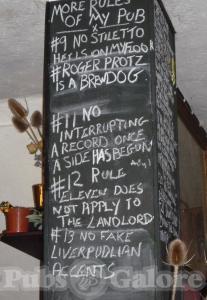 MORE RULES
OF MY PUB
#9 NO STILETTO
HEELS ON MY FLOOR
#ROGER PROTZ
IS A BREWDOG
#11 NO
INTERRUPTING
A RECORD ONCE
A SIDE HAS BEGUN
#12 RULE
ELEVEN DOES
NOT APPLY TO
THE LANDLORD
#13 NO FAKE
LIVERPUDLIAN
ACCENTS
Pubs Galore